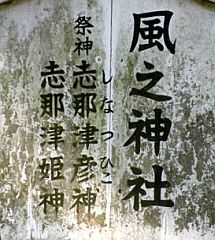 風之神社
祭神
志那津彦神
しなつひこ
志那津姫神